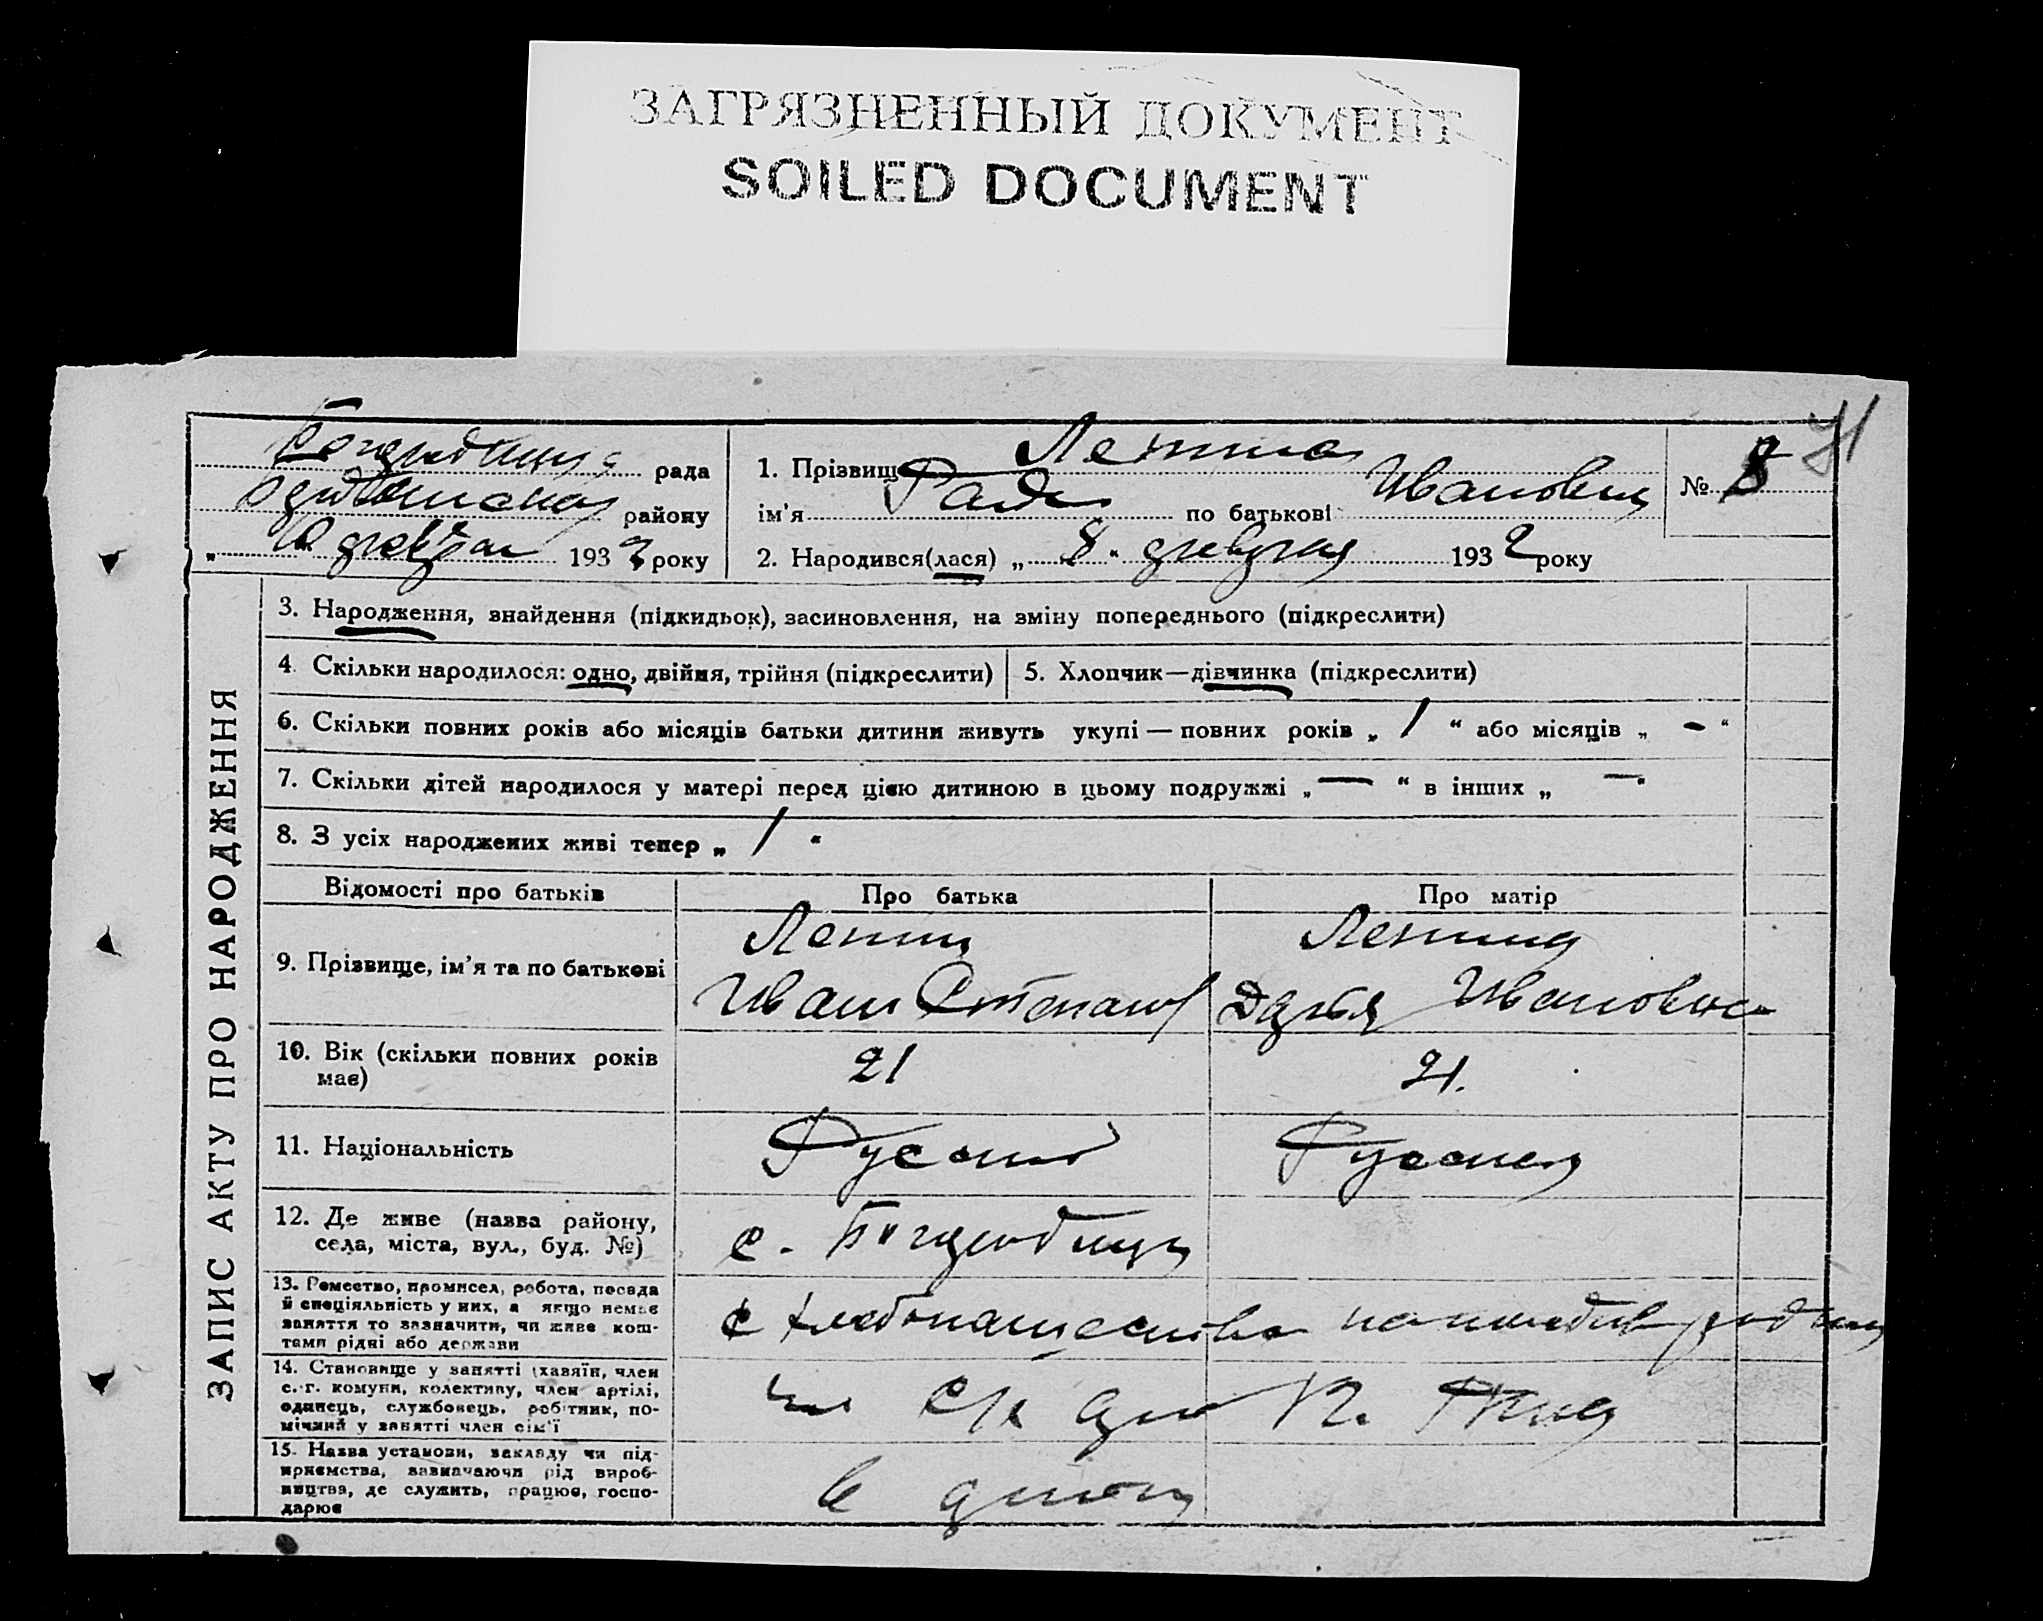 ЗАГРЯЗНЕННЫЙ ДОКУМЕНТ
SOILED DOCUMENT
рада
району
10 1933 року
1. Прізвище Ленина
ім'я по батькові Ивановна
2. Народився(лася) „ 8 “ 1932 року
№ 8
71
ЗАПИС АКТУ ПРО НАРОДЖЕННЯ
3. Народження, знайдення (підкидьок), засиновлення, на зміну попереднього (підкреслити)
4. Скільки народилося: одно, двійня, трійня (підкреслити)
5. Хлопчик—дівчинка (підкреслити)
6. Скільки повних років або місяців батьки дитини живуть укупі — повних років „ 1 “ або місяців „ - “
7. Скільки дітей народилося у матері перед цією дитиною в цьому подружжі „ — “ в інших „ — “
8. З усіх народжених живі тепер „ 1 “
Відомості про батьків
Про батька
Про матір
9. Прізвище, ім'я та по батькові
Ленин
Иван Степанов
Ленина
Дарья Ивановна
10. Вік (скільки повних років
має)
21
21.
11. Національність
12. Де живе (назва району,
села, міста, вул., буд. №)
с.
13. Ремество, промисел, робота, посада
й спеціяльність у них, а якщо немає
заняття то зазначити, чи живе кош-
тами рідні або держави
14. Становище у занятті (хазяїн, член
с.-г. комуни, колективу, член артілі,
одинець, службовець, робітник, по-
мічний у занятті член сім'ї
15. Назва установи, закладу чи під-
приємства, зазначаючи рід вироб-
ництва, де служить, працює, госпо-
дарює